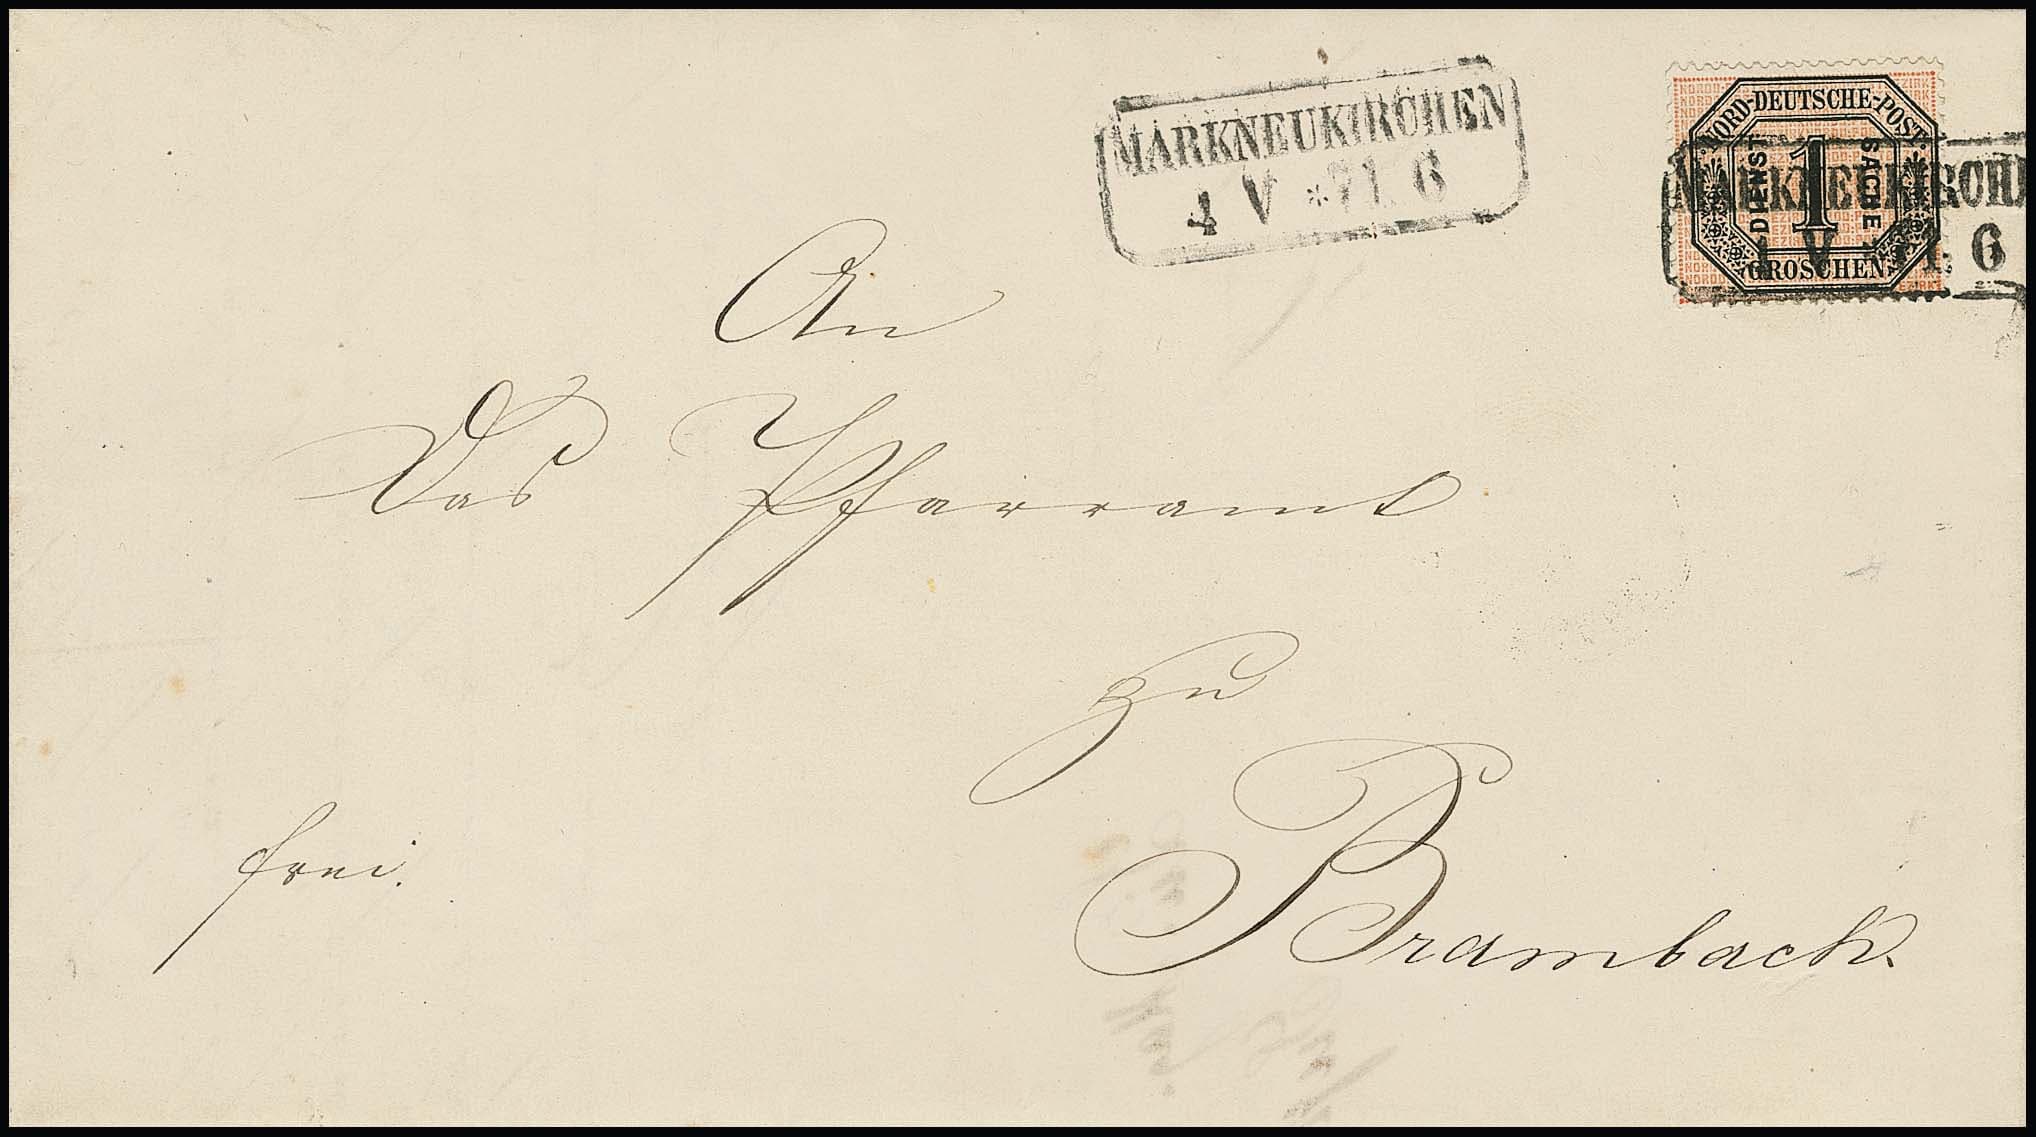 MARKNEUKIRCHEN
4 V *71. 6
NORD-DEUTSCHE-POST.
DIENST
1
SACHE
GROSCHEN
MARKNEUKIRCH
V 71. 6
An
Das Pfarramt
zu
Brambach.
frei.